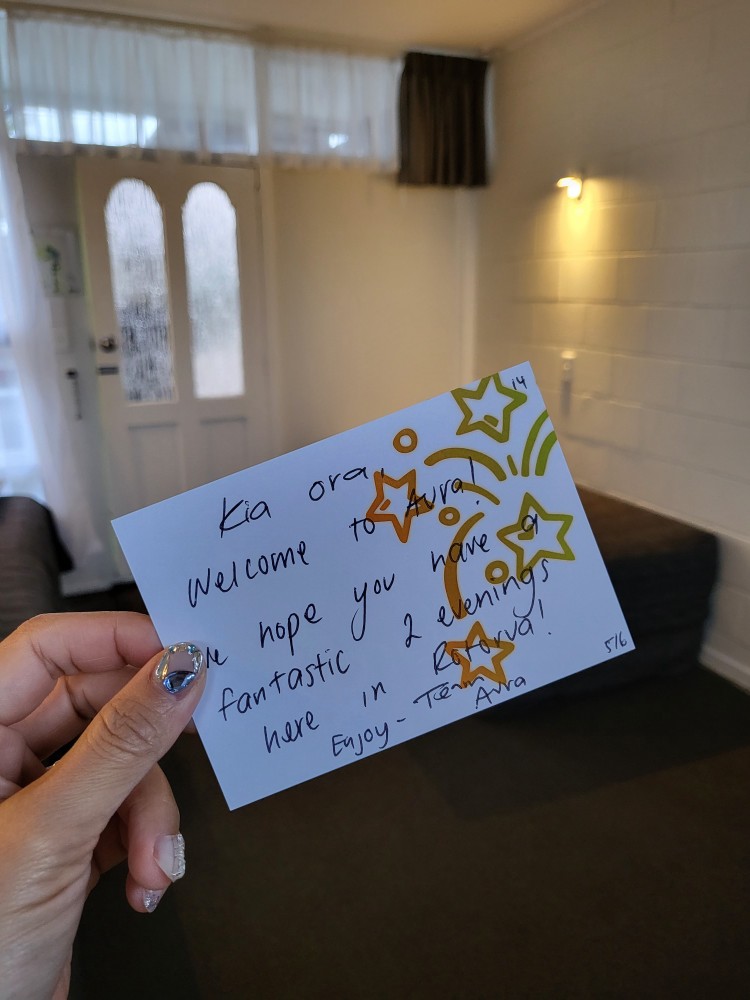 14
Kia ora,
Welcome to Aura!
we hope you have a
fantastic 2 evenings
here in Rotorua!
Enjoy - Team
Aura
5/6